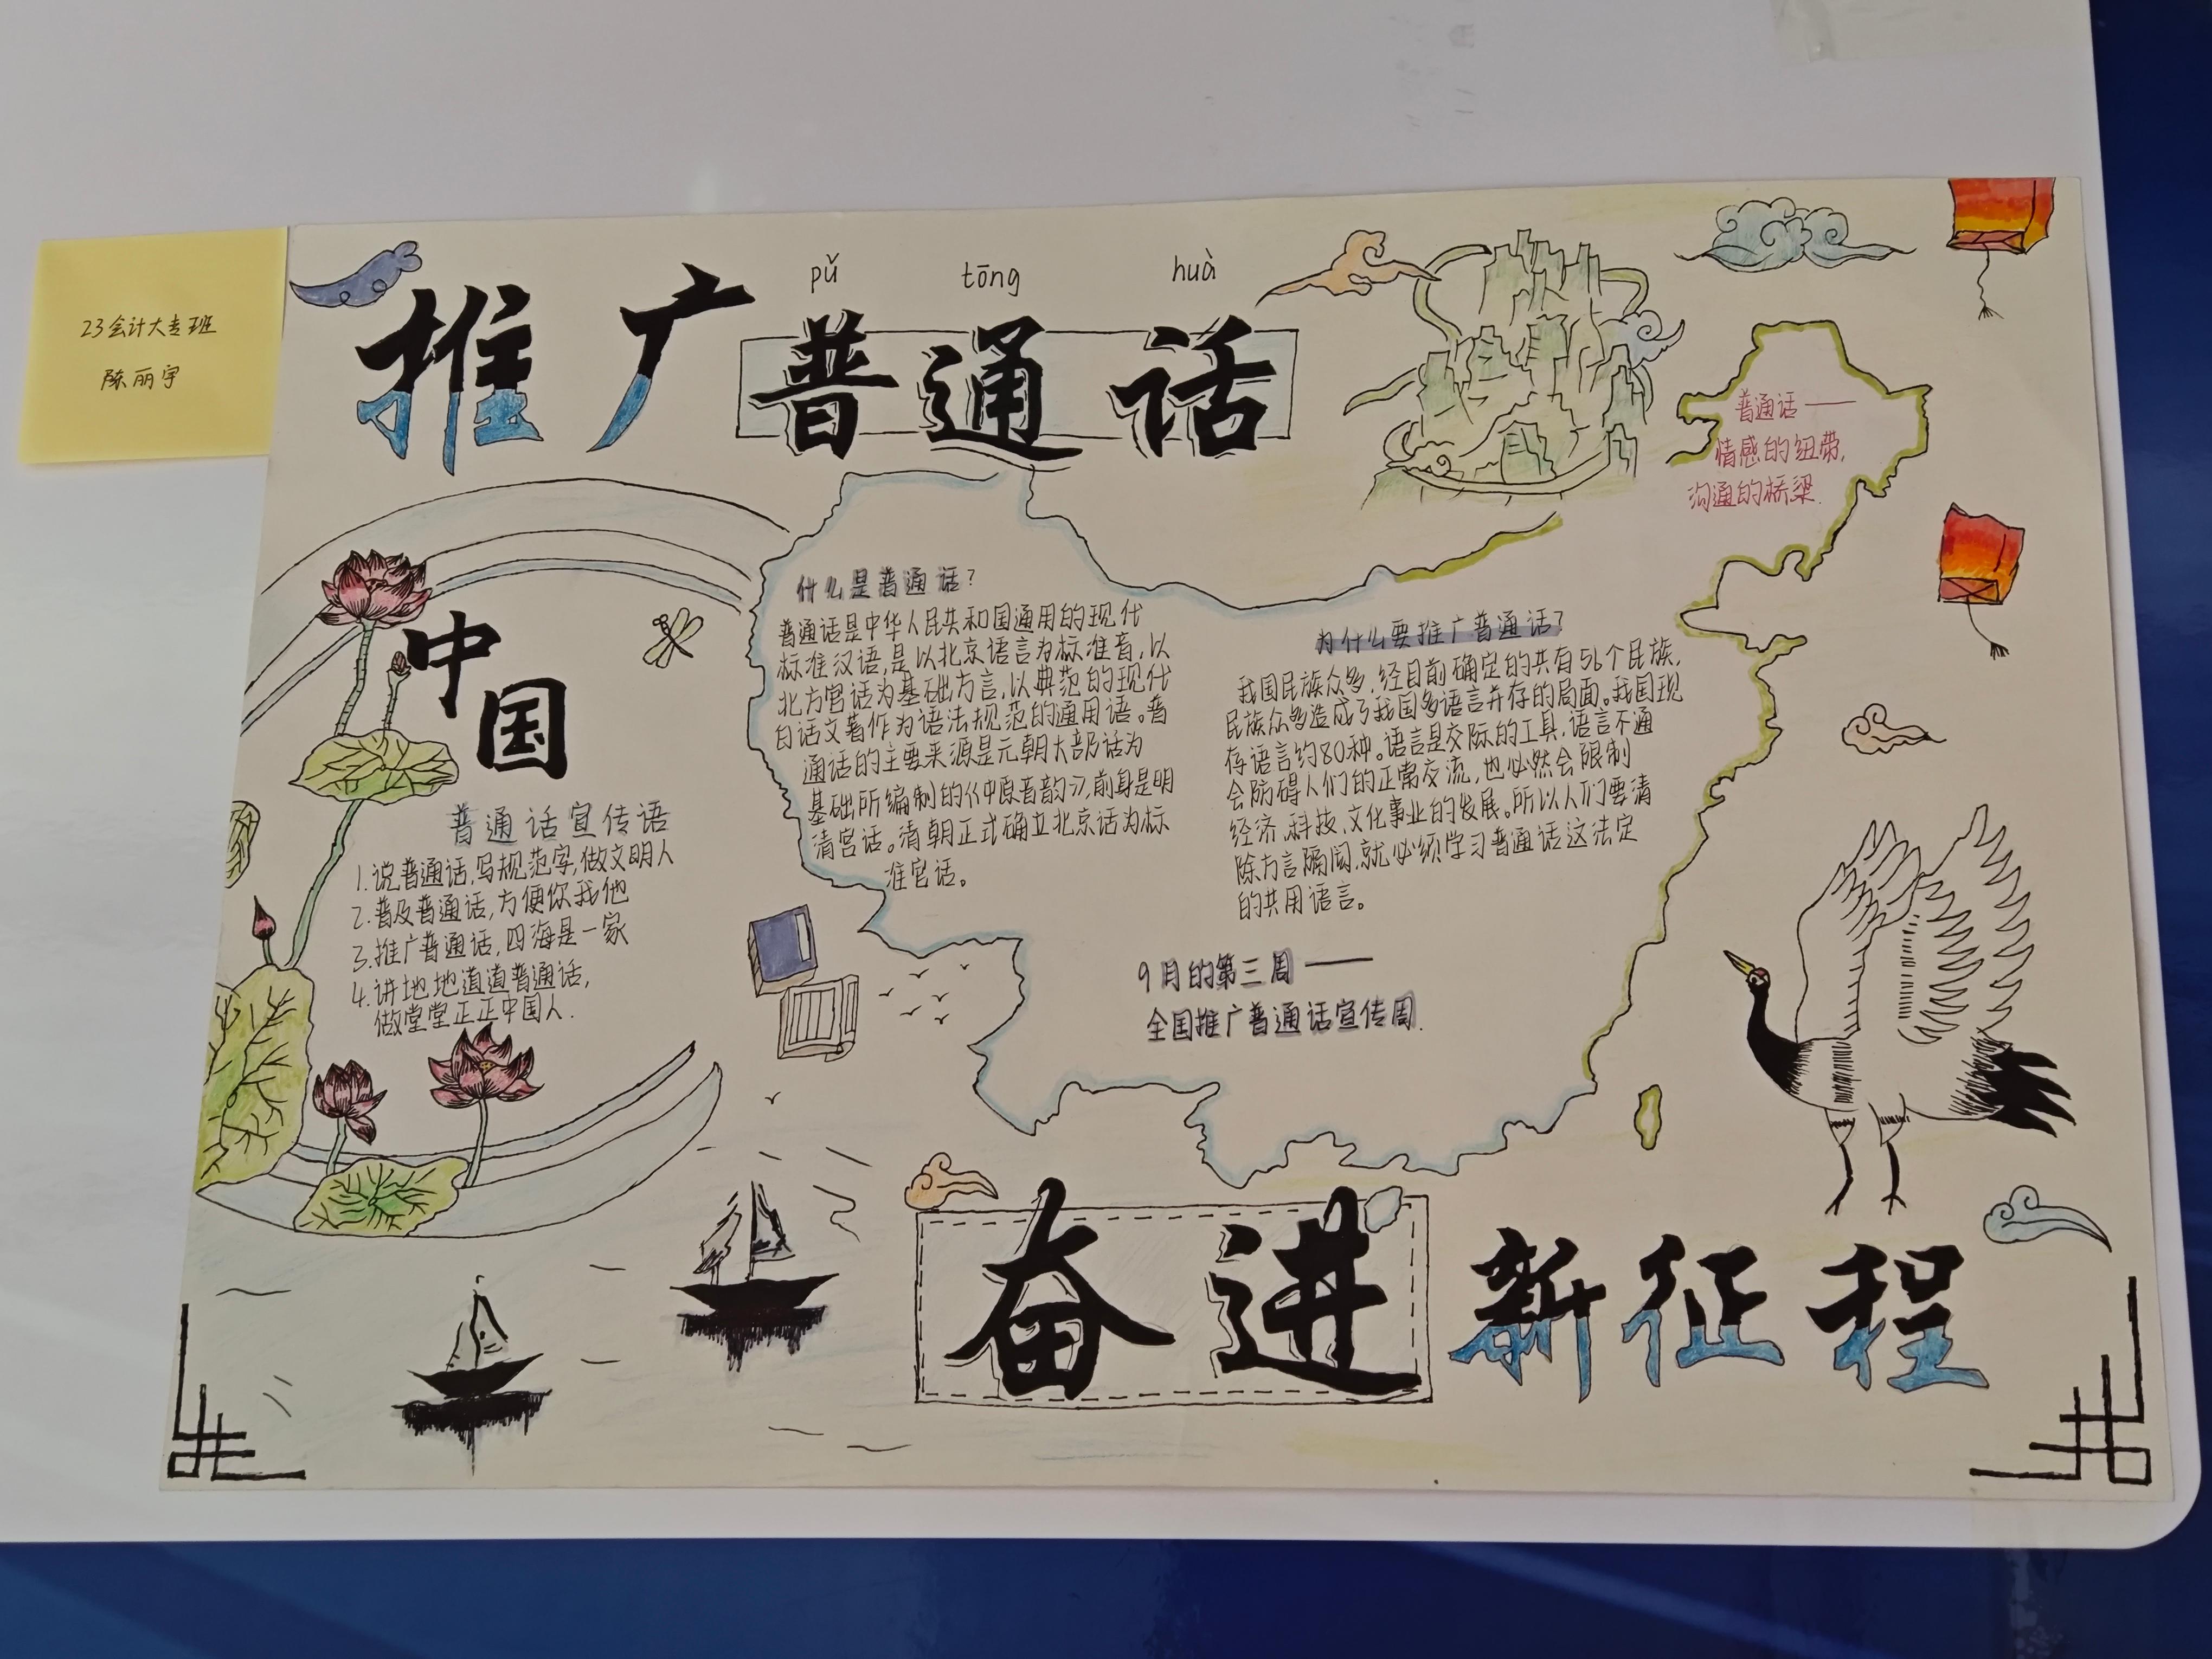 23会计大专班
陈丽宇
pǔ tōng huà
推广普通话
普通话——
情感的纽带,
沟通的桥梁.
中
国
普通话宣传语
1.说普通话,写规范字,做文明人
2.普及普通话,方便你我他
3.推广普通话,四海是一家
4.讲地地道道普通话,
做堂堂正正中国人.
什么是普通话?
普通话是中华人民共和国通用的现代
标准汉语,是以北京语言为标准音,以
北方官话为基础方言,以典范的现代
白话文著作为语法规范的通用语。普
通话的主要来源是元朝大部话为
基础所编制的《中原音韵》,前身是明
清官话。清朝正式确立北京话为标
准官话。
为什么要推广普通话?
我国民族众多,经目前确定的共有56个民族,
民族众多造成了我国多语言并存的局面。我国现
存语言约80种。语言是交际的工具,语言不通
会防碍人们的正常交流,也必然会限制
经济、科技、文化事业的发展。所以人们要清
除方言隔阂,就必须学习普通话这法定
的共用语言。
9月的第三周——
全国推广普通话宣传周.
奋进新征程